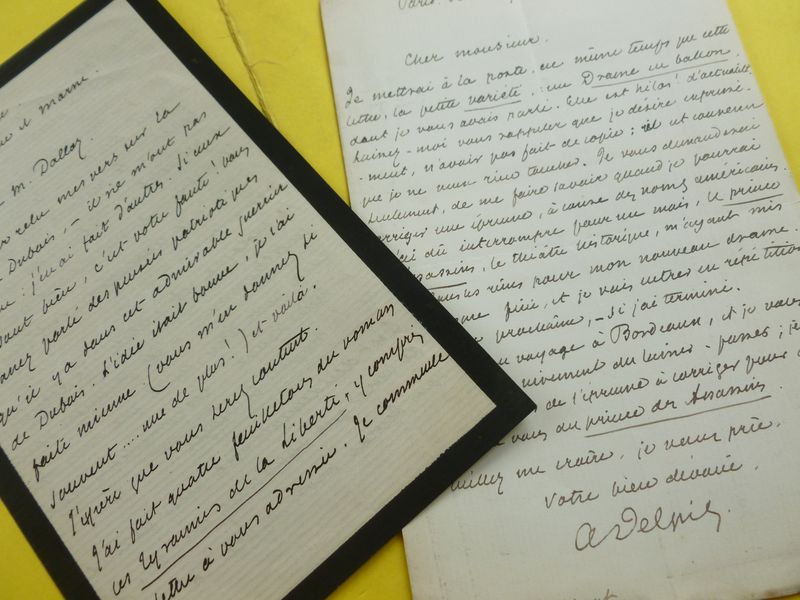 e et marne.
M. Dalloz
relu mes vers sur la
Dubois, - il ne m'ont pas
: j'en ai fait d'autres. Si eux
bien, c'est votre faute! vous
avez parlé des plaisirs patriotiques
qu'il y a dans cet admirable guerrier
de Dubois. L'idée était bonne, je l'ai
faite mienne (vous m'en donnez si
souvent.... une de plus!) et voilà.
J'espère que vous serez content.
J'ai fait quatre feuilletons du roman
les Tyrannies de la Liberté, y compris
lettre à vous adressée. Je commence
Paris.
Cher monsieur.
Je mettrai à la poste, en même temps que cette
lettre, la petite variété: un Drame en ballon
dont je vous avais parlé. Elle est hélas! d'actualité
Laissez-moi vous rappeler que je désire
-ment, n'avoir pas fait de copie: et convenu
que je ne veux rien toucher. Je vous demanderai
seulement, de me faire savoir quand je pourrai
corriger une épreuve, à cause des noms américains.
J'ai dû interrompre pour un mois, le prince
Assassins, le théâtre historique, m'ayant mis
les reins pour mon nouveau drame.
pièce, et je vais entrer en répétition
prochaine, - si j'ai terminé.
voyage à Bordeaux, et je vais
de l'épreuve à corriger pour
vous du prince des Assassins.
Veuillez me croire, je vous prie.
Votre bien dévoué.
A Delpit